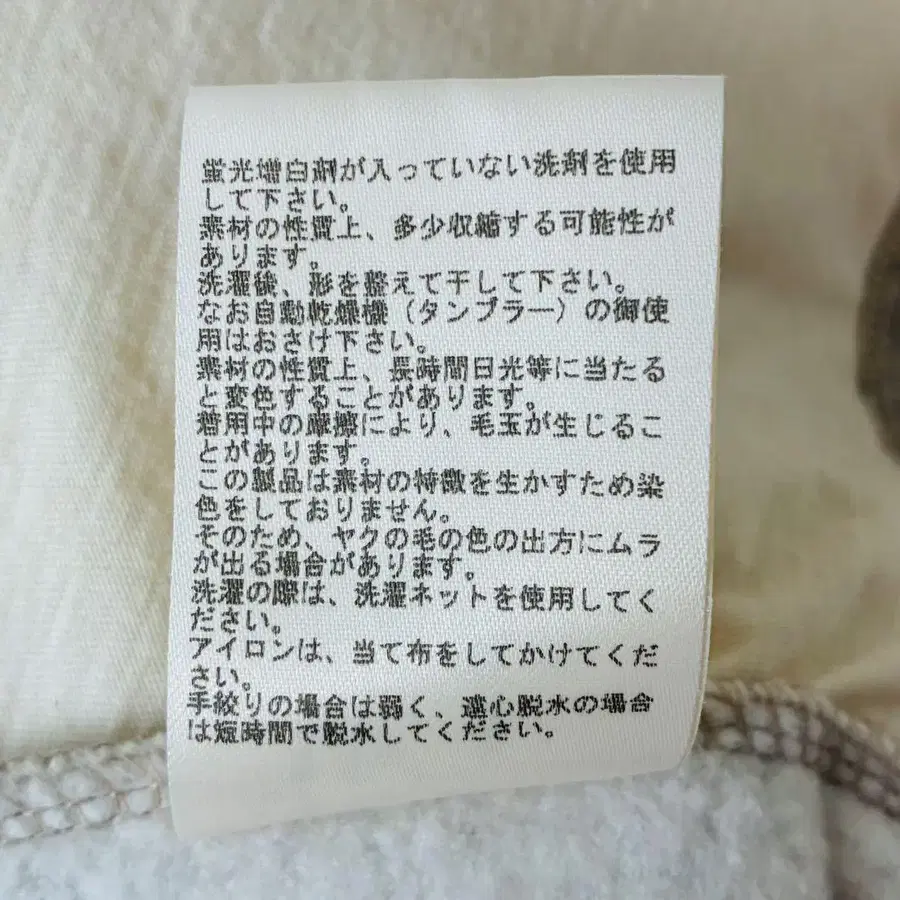 蛍光増白剤が入っていない洗剤を使用
して下さい。
素材の性質上、多少収縮する可能性が
あります。
洗濯後、形を整えて干して下さい。
なお自動乾燥機（タンブラー）の御使
用はおさけ下さい。
素材の性質上、長時間日光等に当たる
と変色することがあります。
着用中の摩擦により、毛玉が生じるこ
とがあります。
この製品は素材の特徴を生かすため染
色をしておりません。
そのため、ヤクの毛の色の出方にムラ
が出る場合があります。
洗濯の際は、洗濯ネットを使用してく
ださい。
アイロンは、当て布をしてかけてくだ
さい。
手絞りの場合は弱く、遠心脱水の場合
は短時間で脱水してください。